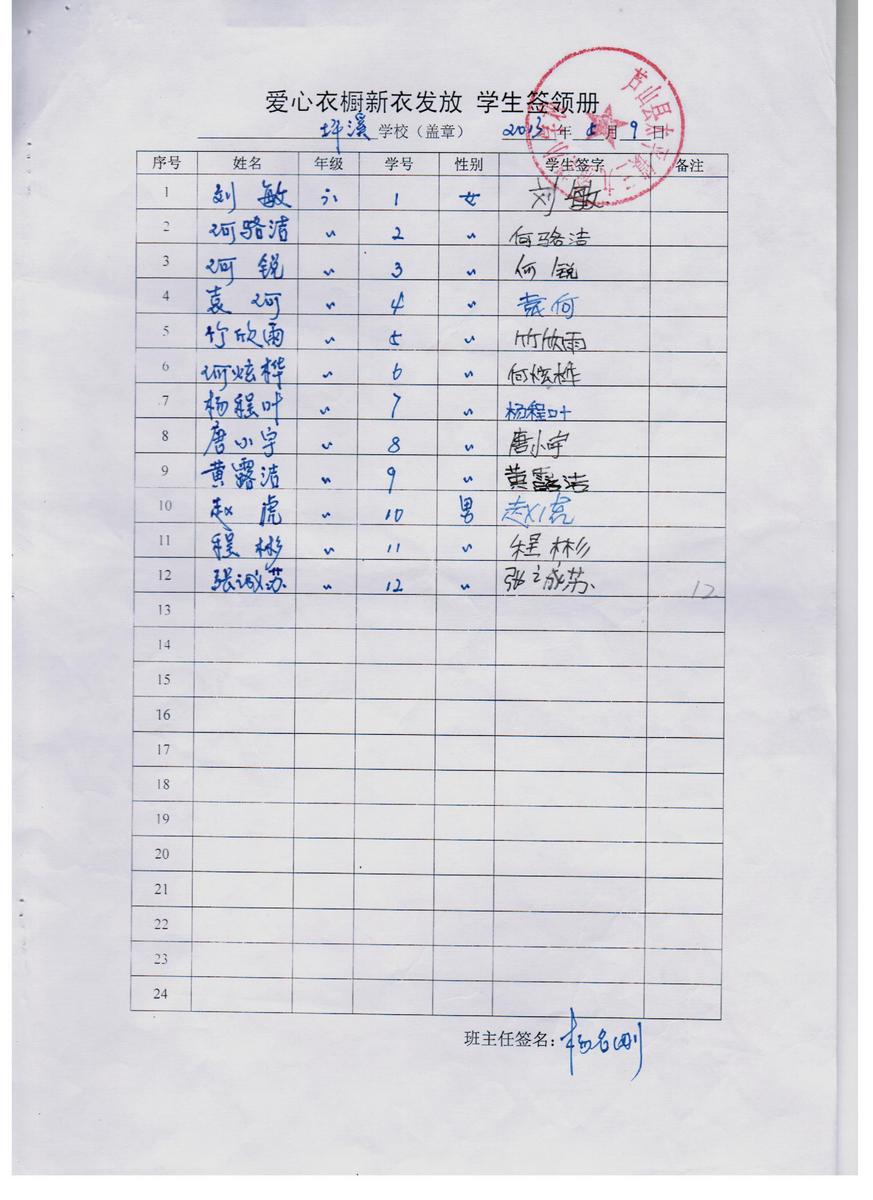 爱心衣橱新衣发放 学生签领册
坪溪 学校（盖章） 2013 年 5 月 9 日
芦山县
序号 姓名 年级 学号 性别 学生签字 备注
1 刘敏 六 1 女 刘敏
2 何骆洁 〃 2 〃 何骆洁
3 何锐 〃 3 〃 何锐
4 袁何 〃 4 〃 袁何
5 竹欣雨 〃 5 〃 竹欣雨
6 何炫桦 〃 6 〃 何炫桦
7 杨程叶 〃 7 〃 杨程叶
8 唐小宇 〃 8 〃 唐小宇
9 黄露洁 〃 9 〃 黄露洁
10 赵虎 〃 10 男 赵虎
11 程彬 〃 11 〃 程彬
12 张诚苏 〃 12 〃 张诚苏 12
13
14
15
16
17
18
19
20
21
22
23
24
班主任签名：杨名刚